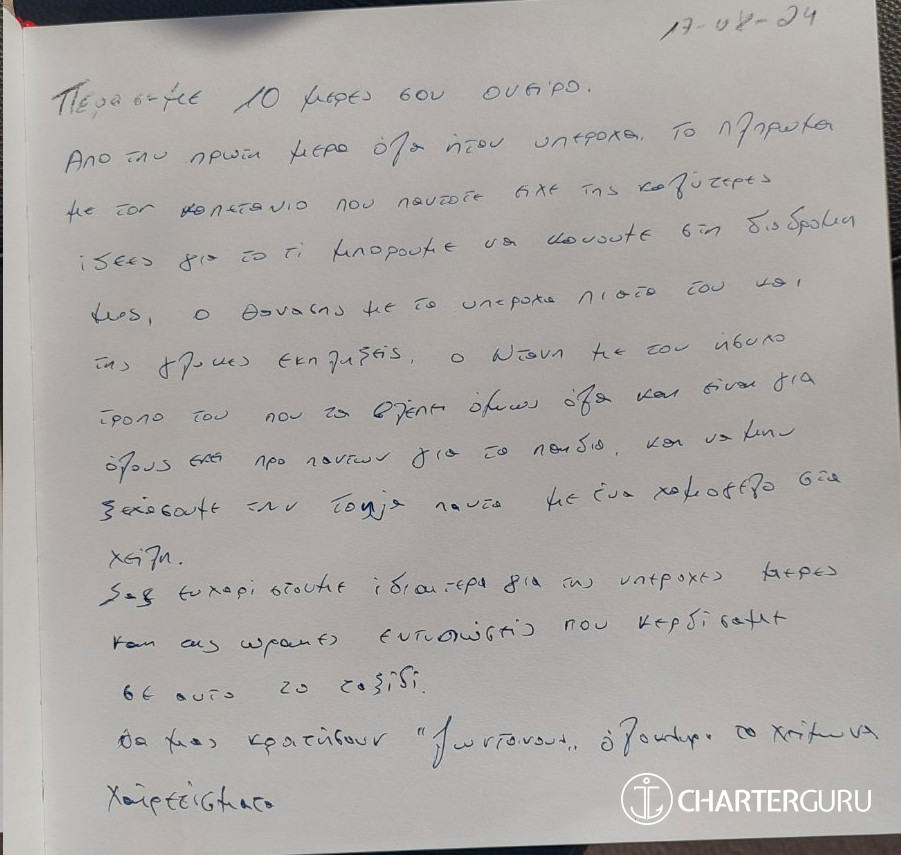 17-08-24
Περασαμε 10 μερες σαν ονειρο.
Απο την πρωτη μερα όλα ήταν υπεροχα. Το πληρωμα
με τον καπετανιο που παντοτε ειχε της καλύτερες
ιδεες για το τι μπορουμε να κανουμε στη διαδρομη
μας, ο Θανασης με τα υπεροχα πιατα του και
της γλυκιες εκπληξεις, ο Ντανη με τον ήσυχο
τροπο του που τα βλεπει όμως όλα και ειναι για
όλους εκει προ παντων για το παιδια, και να μην
ξεχάσουμε την παντα με ένα χαμογελο στα
χείλη.
Σας ευχαριστουμε ιδιαιτερα για της υπεροχες μερες
και της ωραιες εντυπωσεις που κερδισαμε
σε αυτο το ταξίδι.
Θα μας κρατήσουν "ζωντανους" όλοκληρο το χειμωνα
Χαιρετίσματα
CHARTERGURU